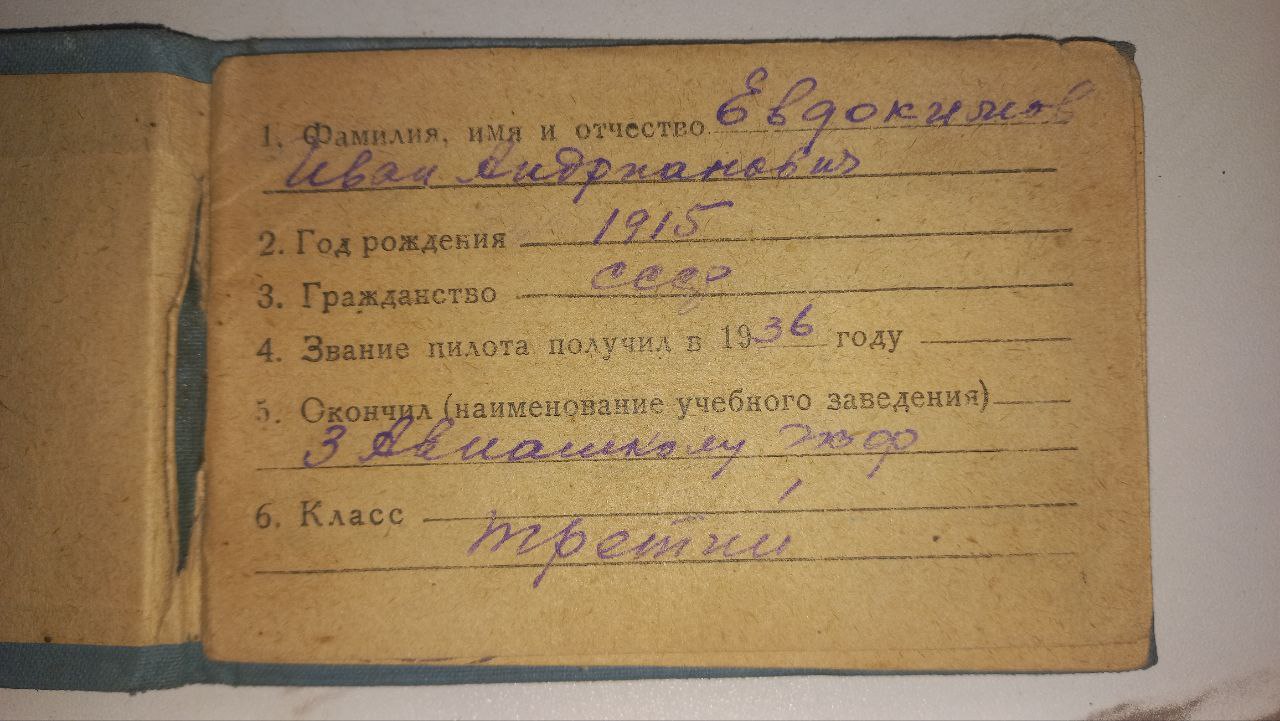 1. Фамилия, имя и отчество Евдокимов
Иван Андрианович
2. Год рождения 1915
3. Гражданство СССР
4. Звание пилота получил в 1936 году
5. Окончил (наименование учебного заведения)
3 Авиашколу ГВФ
6. Класс
третий